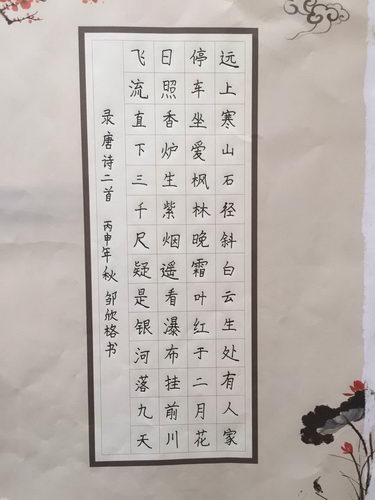 远上寒山石径斜白云生处有人家
停车坐爱枫林晚霜叶红于二月花
日照香炉生紫烟遥看瀑布挂前川
飞流直下三千尺疑是银河落九天
录唐诗二首 丙申年秋 邹欣格书